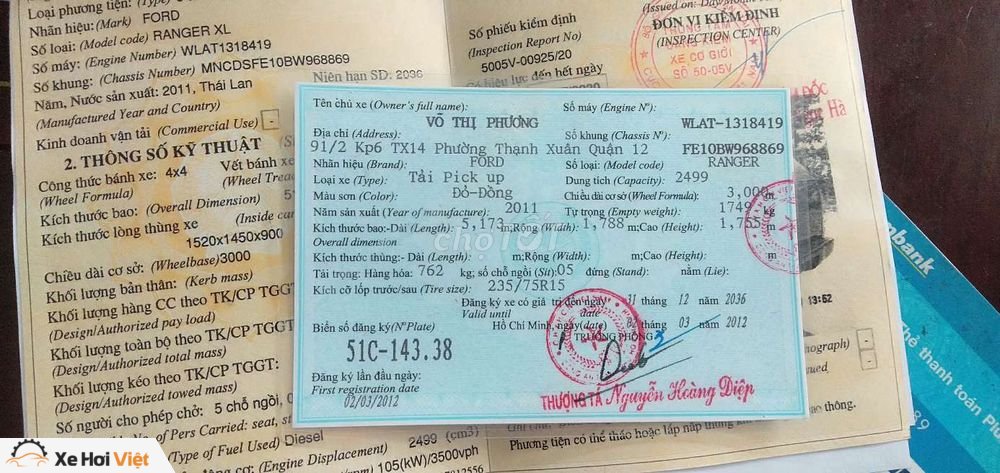 Loại phương tiện: (Type)
Nhãn hiệu: (Mark) FORD
Số loại: (Model code) RANGER XL
Số máy: (Engine Number) WLAT1318419
Số khung: (Chassis Number) MNCDSFE10BW968869
Năm, Nước sản xuất: 2011, Thái Lan
Niên hạn SD: 2036
(Manufactured Year and Country)
Kinh doanh vận tải (Commercial Use)
2. THÔNG SỐ KỸ THUẬT
Công thức bánh xe: 4x4
Vết bánh xe
(Wheel Formula)
(Wheel Tread
Kích thước bao: (Overall Dimension)
Kích thước lòng thùng xe
(Inside
1520x1450x900
Chiều dài cơ sở: (Wheelbase) 3000
Khối lượng bản thân: (Kerb mass)
Khối lượng hàng CC theo TK/CP TGGT
(Design/Authorized pay load)
Khối lượng toàn bộ theo TK/CP TGGT
(Design/Authorized total mass)
Khối lượng kéo theo TK/CP TGGT:
(Design/Authorized towed mass)
Số người cho phép chở: 5 chỗ ngồi, 0
No. of Pers Carried: seat,
(Type of Fuel Used) Diesel
(Engine Displacement) 2499 (cm3)
105(kW)/3500vph
Số phiếu kiểm định
(Inspection Report No)
5005V-00925/20
Có hiệu lực đến hết ngày
(Issued on: Day/Month
ĐƠN VỊ KIỂM ĐỊNH
(INSPECTION CENTER)
XE CƠ GIỚI
SỐ 50-05V
Tên chủ xe (Owner's full name):
VÕ THỊ PHƯƠNG
Số máy (Engine Nº):
WLAT-1318419
Địa chỉ (Address):
Số khung (Chassis Nº):
91/2 Kp6 TX14 Phường Thạnh Xuân Quận 12
FE10BW968869
Nhãn hiệu (Brand): FORD
Số loại: (Model code) RANGER
Loại xe (Type): Tải Pick up
Dung tích (Capacity): 2499
Màu sơn (Color): Đỏ-Đồng
Chiều dài cơ sở (Wheel Formula): 3,000 m
Năm sản xuất (Year of manufacture): 2011
Tự trọng (Empty weight): 1749 kg
Kích thước bao:-Dài (Length): 5,173 m;Rộng (Width): 1,788 m;Cao (Height): 1,755 m
Overall dimension
Kích thước thùng:- Dài (Length): m;Rộng (Width): m;Cao (Height): m
Tải trọng: Hàng hóa: 762 kg; số chỗ ngồi (Sit): 05 đứng (Stand): nằm (Lie):
Kích cỡ lốp trước/sau (Tire size): 235/75R15
Đăng ký xe có giá trị đến ngày 31 tháng 12 năm 2036
Valid until date
Biển số đăng ký (NºPlate)
Hồ Chí Minh, ngày (date) tháng 03 năm 2012
TRƯỞNG PHÒNG
51C-143.38
Đăng ký lần đầu ngày:
First registration date
02/03/2012
THƯỢNG TÁ Nguyễn Hoàng Diệp
chợTỐT
13:52
Phương tiện có thể tháo hoặc lắp
thanh toán
Xe Hơi Việt